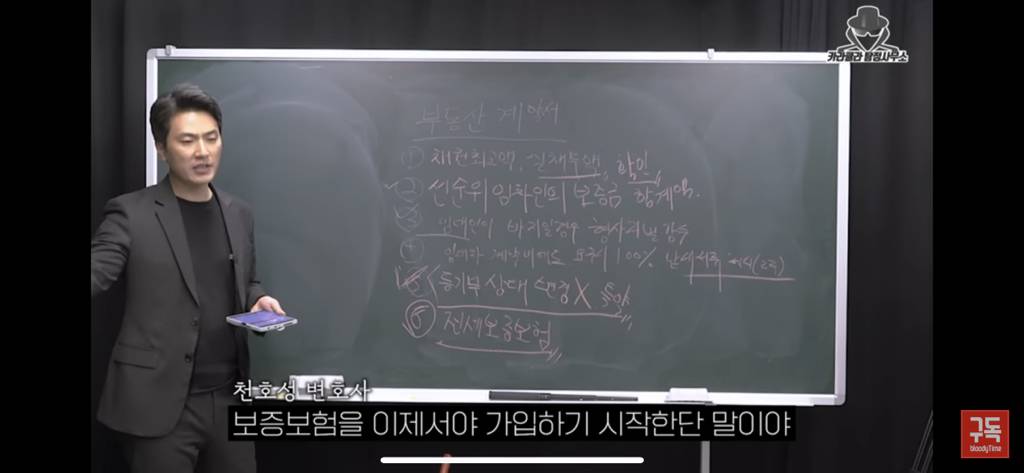 카라큘라 탐정사무소
부동산 계약서
① 채권최고액, 실채무액, 확인
② 선순위 임차인의 보증금 합계액.
③ 임대인이 바지일경우 형사처벌 감수
④ 100%
⑤ 등기부 상태 변경 X
⑥ 전세보증보험
천호성 변호사
보증보험을 이제서야 가입하기 시작한단 말이야
구독
bloodyTime